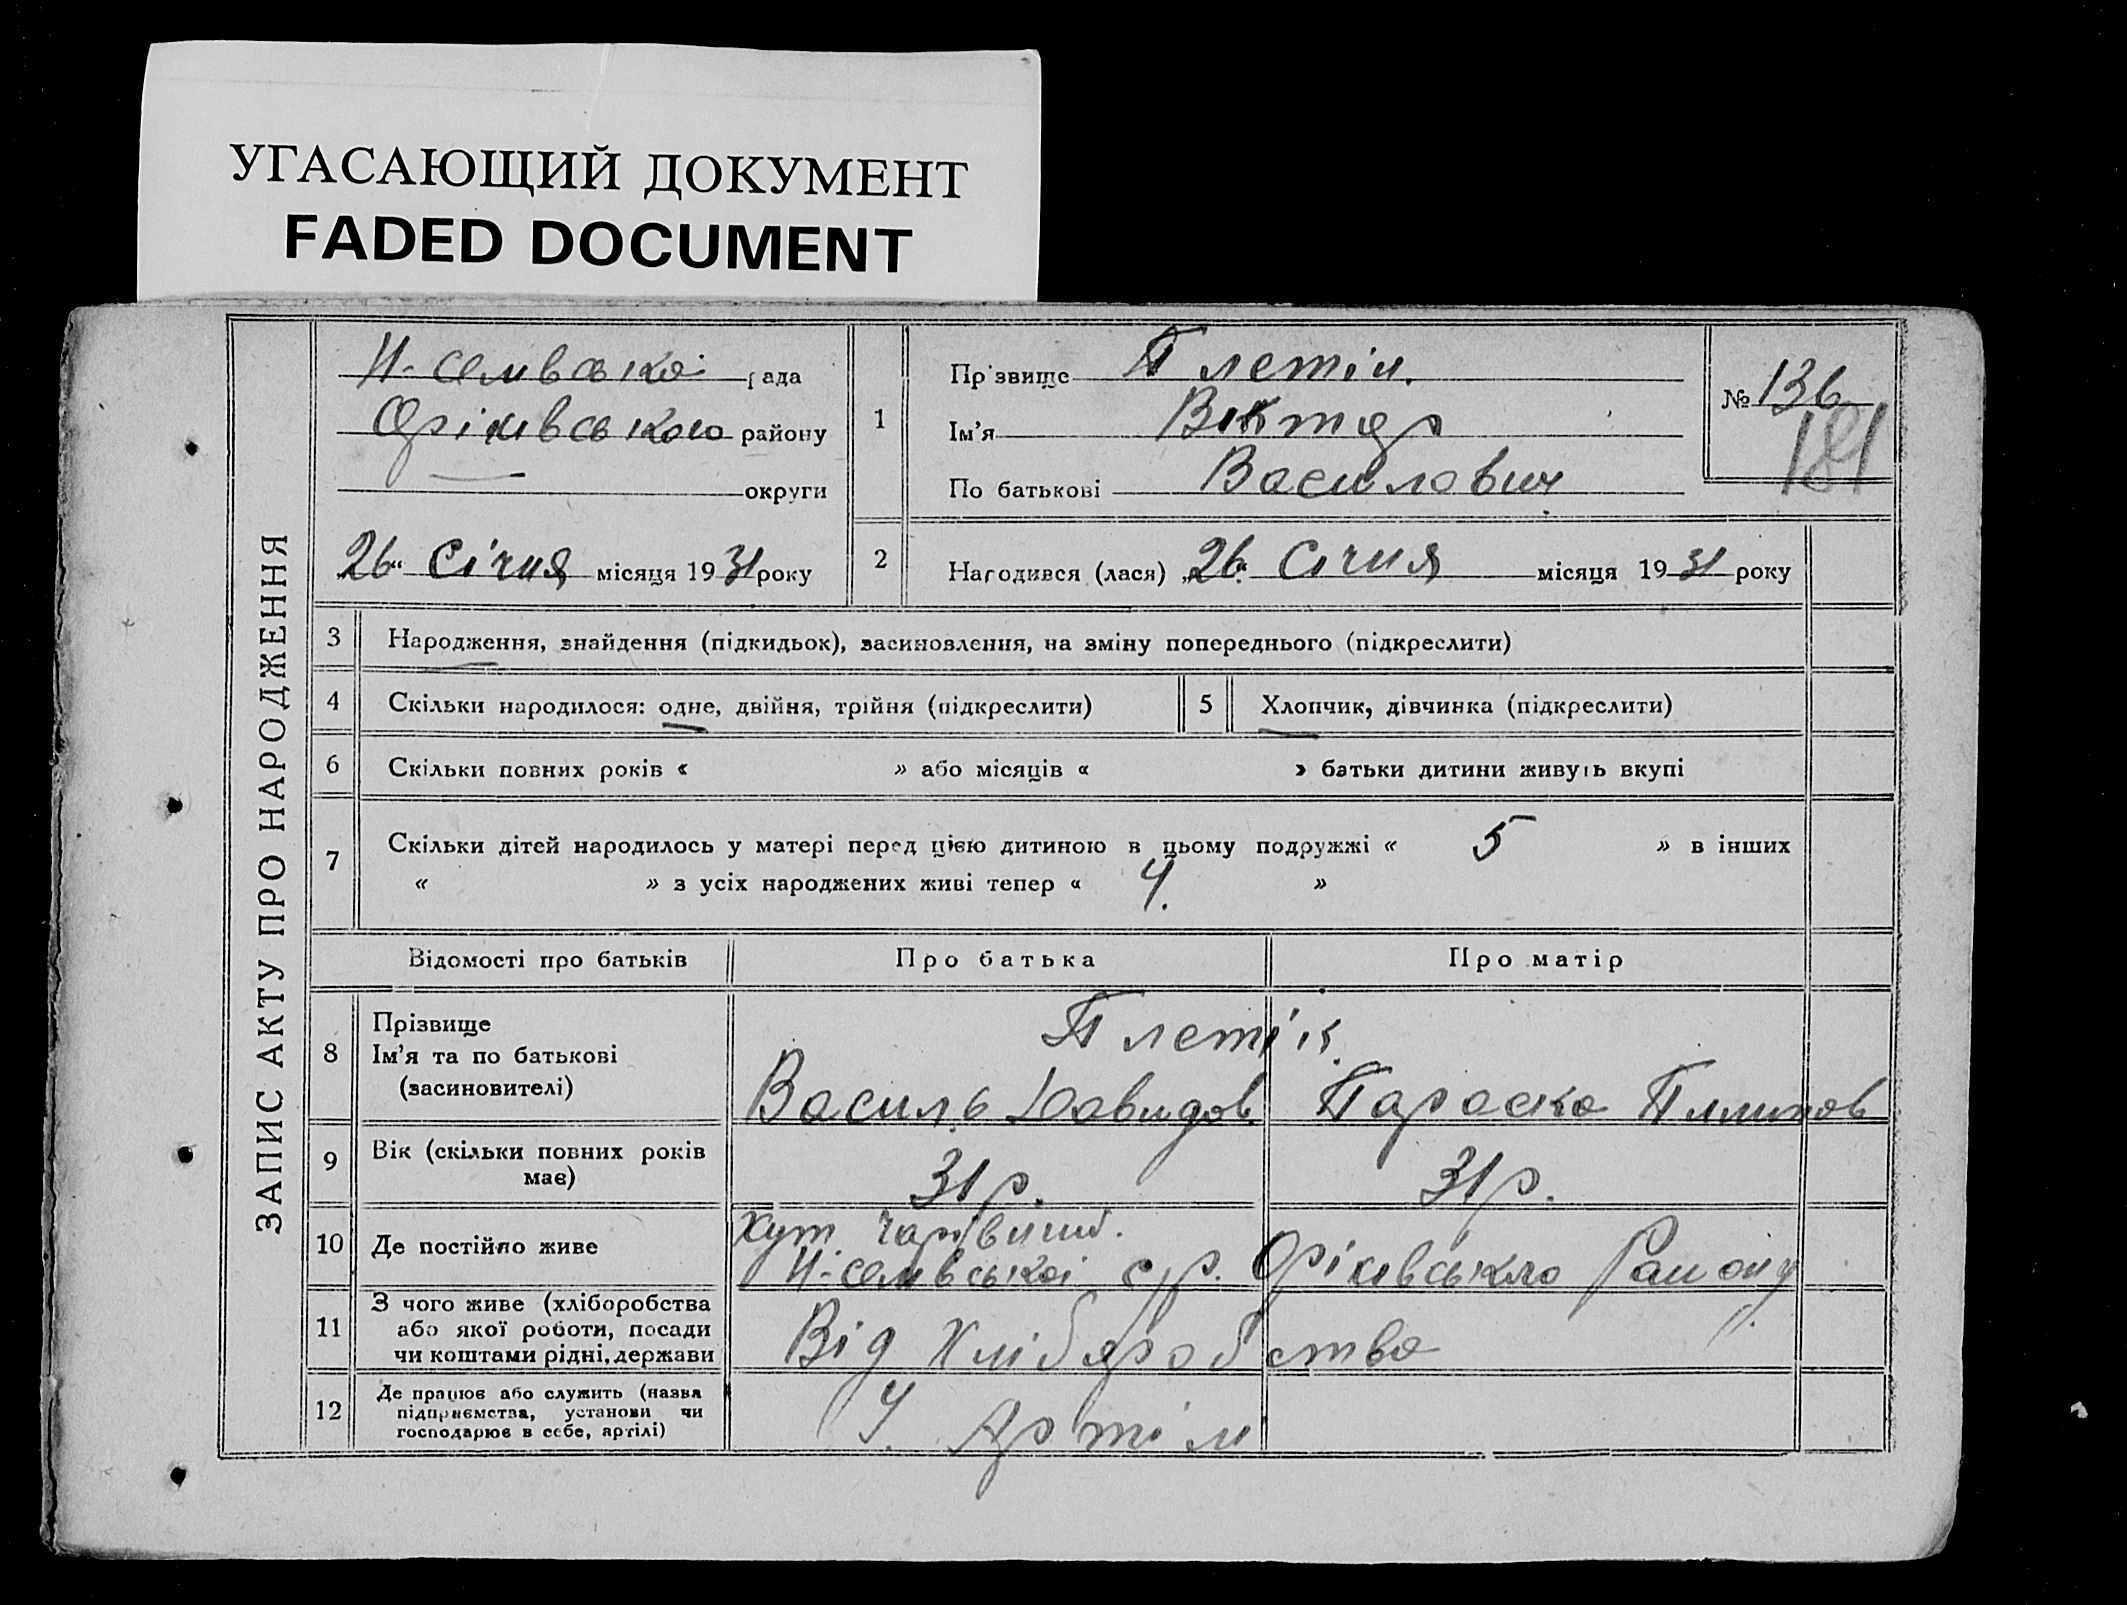 УГАСАЮЩИЙ ДОКУМЕНТ
FADED DOCUMENT
ЗАПИС АКТУ ПРО НАРОДЖЕННЯ
рада
Оріхівського району
округи
„26“ Січня місяця 1931 року
1
Прізвище Плетін.
Ім'я Віктор
По батькові Василович
№ 136
181
2
Народився (лася) „26“ Січня місяця 1931 року
3 Народження, знайдення (підкидьок), засиновлення, на зміну попереднього (підкреслити)
4 Скільки народилося: одне, двійня, трійня (підкреслити)
5 Хлопчик, дівчинка (підкреслити)
6 Скільки повних років « » або місяців « » батьки дитини живуть вкупі
7 Скільки дітей народилось у матері перед цією дитиною в цьому подружжі « 5 » в інших
« » з усіх народжених живі тепер « 4. »
Відомості про батьків Про батька Про матір
8 Прізвище
Ім'я та по батькові
(засиновителі)
Плетін.
Василь Давидов. Параска Пилипов
9 Вік (скільки повних років
має)
31 р. 31 р.
10 Де постійно живе
хут.
с/р. Оріхівського Району
11 З чого живе (хліборобства
або якої роботи, посади
чи коштами рідні, держави
Від Хліборобства
12 Де працює або служить (назва
підприємства, установи чи
господарює в себе, артілі)
У Артілі